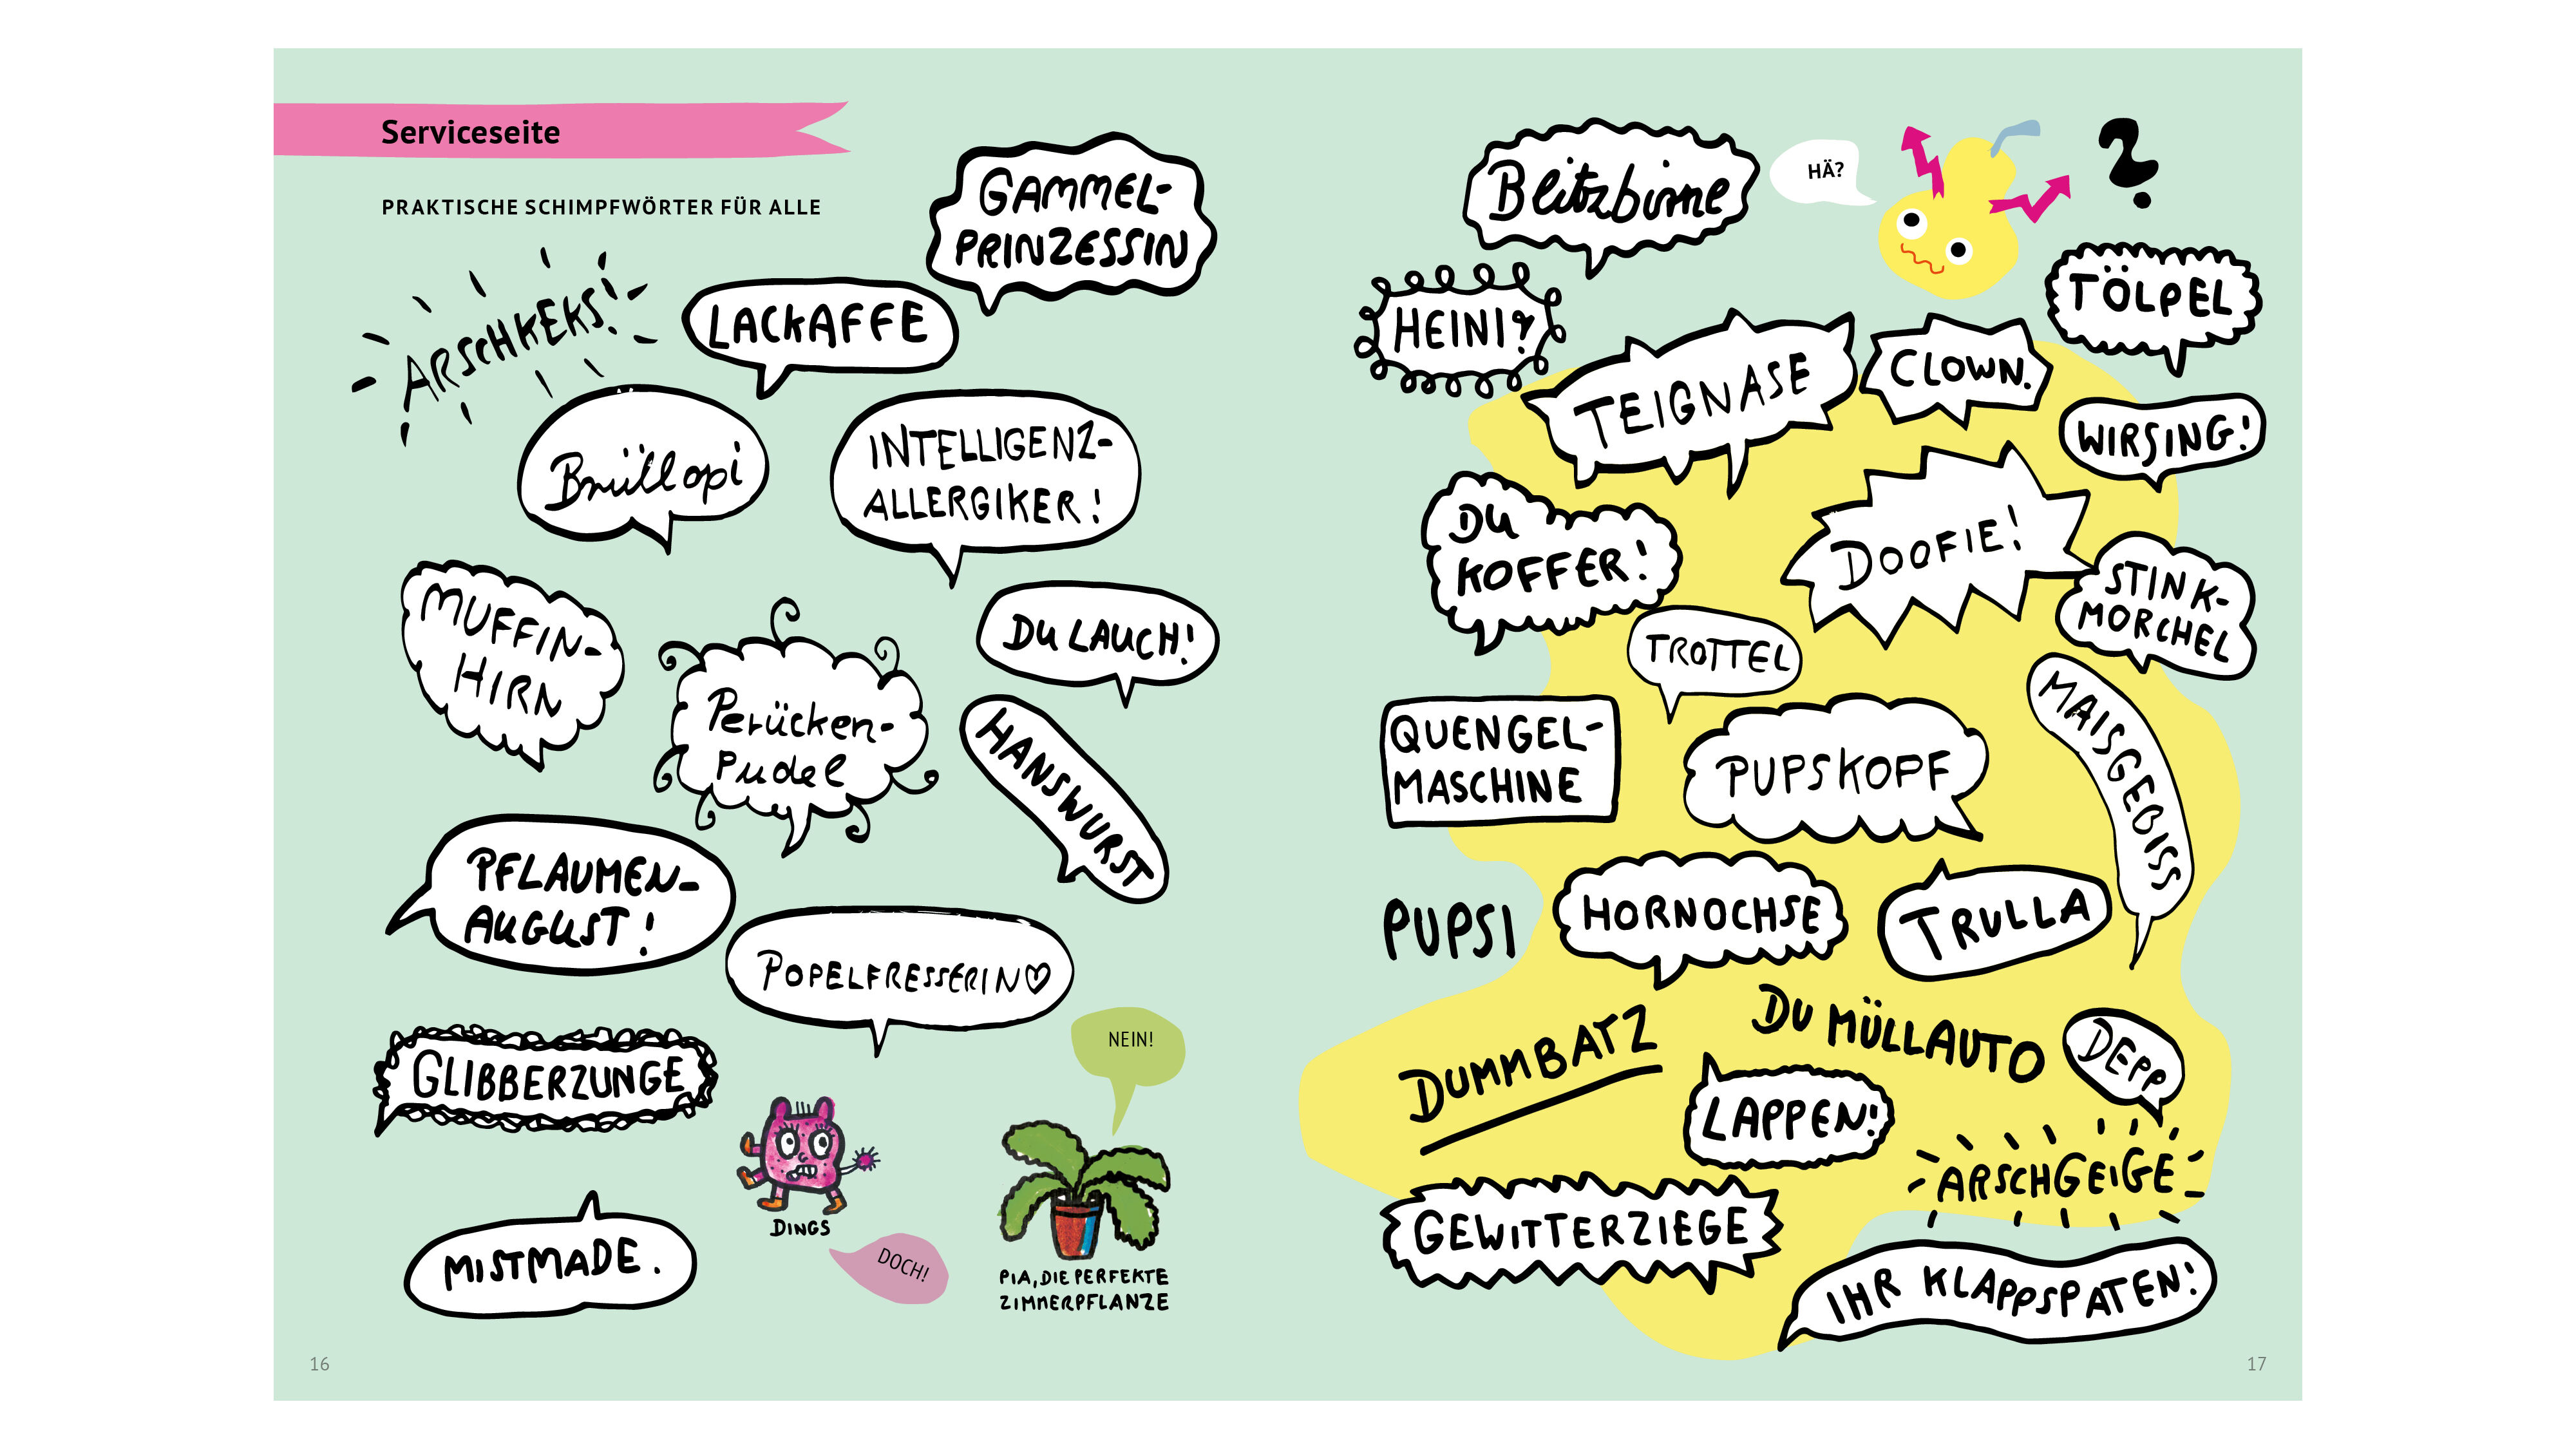 Serviceseite
PRAKTISCHE SCHIMPFWÖRTER FÜR ALLE
GAMMEL-
PRINZESSIN
ARSCHKEKS!
LACKAFFE
Brüllopi
INTELLIGENZ-
ALLERGIKER!
MUFFIN-
HIRN
Perücken-
Pudel
DU LAUCH!
HANSWURST
PFLAUMEN-
AUGUST!
POPELFRESSERIN♡
GLIBBERZUNGE
NEIN!
DINGS
DOCH!
PIA, DIE PERFEKTE
ZIMMERPFLANZE
MISTMADE.
16
Blitzbirne
HÄ?
?
HEINI?
TÖLPEL
TEIGNASE
CLOWN.
WIRSING!
DU
KOFFER!
DOOFIE!
STINK-
MORCHEL
TROTTEL
QUENGEL-
MASCHINE
PUPSKOPF
MAISGEBISS
PUPSI
HORNOCHSE
TRULLA
DUMMBATZ
DU MÜLLAUTO
DEPP
LAPPEN!
ARSCHGEIGE
GEWITTERZIEGE
IHR KLAPPSPATEN!
17